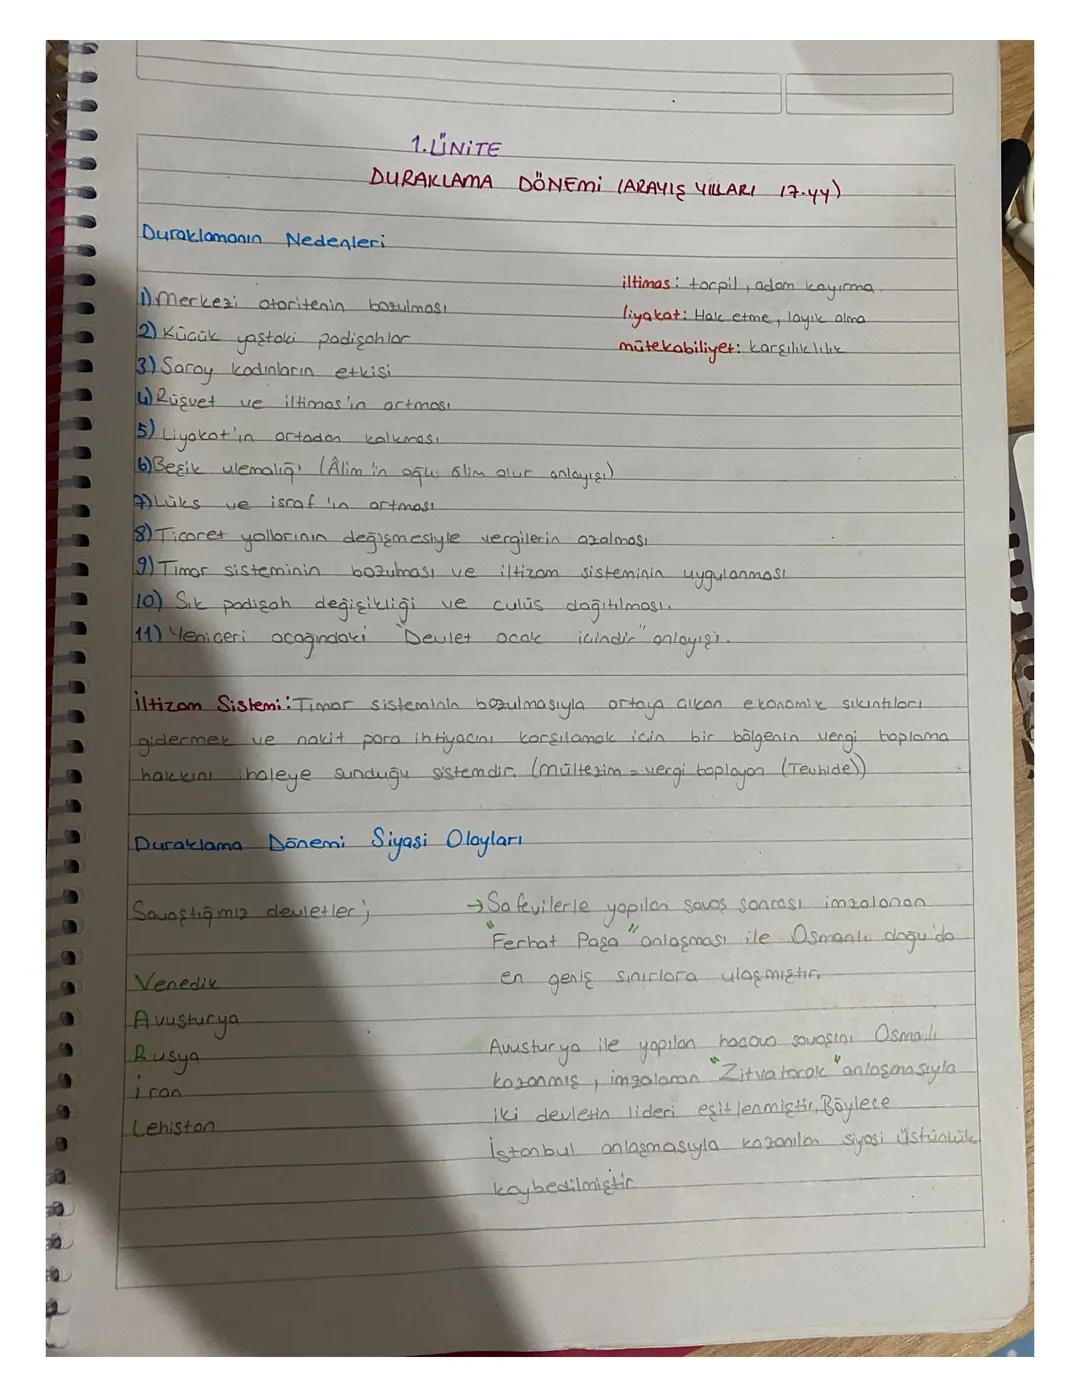 1.ÜNİTE
DURAKLAMA DÖNEMİ (ARAYIŞ YILLARI 17.yy)
Duraklamanın Nedenleri
iltimas: torpil, adam kayırma.
liyakat: Hak etme, layık olma
mütekabiliyet: karşılıklılık
1) Merkezi otoritenin bozulması
2) Küçük yaştaki padişahlar
3) Saray kadınların etkisi
4) Rüşvet ve iltimas'ın artması
5) Liyakat'ın ortadan kalkması
6) Beşik ulemalığı (Âlim'in oğlu âlim olur anlayışı)
7) Lüks ve israf'ın artması
8) Ticaret yollarının değişmesiyle vergilerin azalması
9) Tımar sisteminin bozulması ve iltizam sisteminin uygulanması
10) Sık padişah değişikliği ve culüs dağıtılması.
11) Yeniçeri ocağındaki "Devlet ocak içindir" anlayışı.
İltizam Sistemi: Tımar sisteminin bozulmasıyla ortaya çıkan ekonomik sıkıntıları
gidermek ve nakit para ihtiyacını karşılamak için bir bölgenin vergi toplama
hakkını ihaleye sunduğu sistemdir. (mültezim = vergi toplayan (Tevhide))
Duraklama Dönemi Siyasi Olayları
Savaştığımız devletler;
Venedik
Avusturya
Rusya
İran
Lehistan
→ Safevilerle yapılan savaş sonrası imzalanan
"Ferhat Paşa" anlaşması ile Osmanlı doğu'da
en geniş sınırlara ulaşmıştır.
Avusturya ile yapılan haçova savaşını Osmalı
kazanmış, imzalanan "Zitvatorok" anlaşmasıyla
iki devletin lideri eşitlenmiştir. Böylece
İstanbul anlaşmasıyla kazanılan siyasi üstünlük
kaybedilmiştir